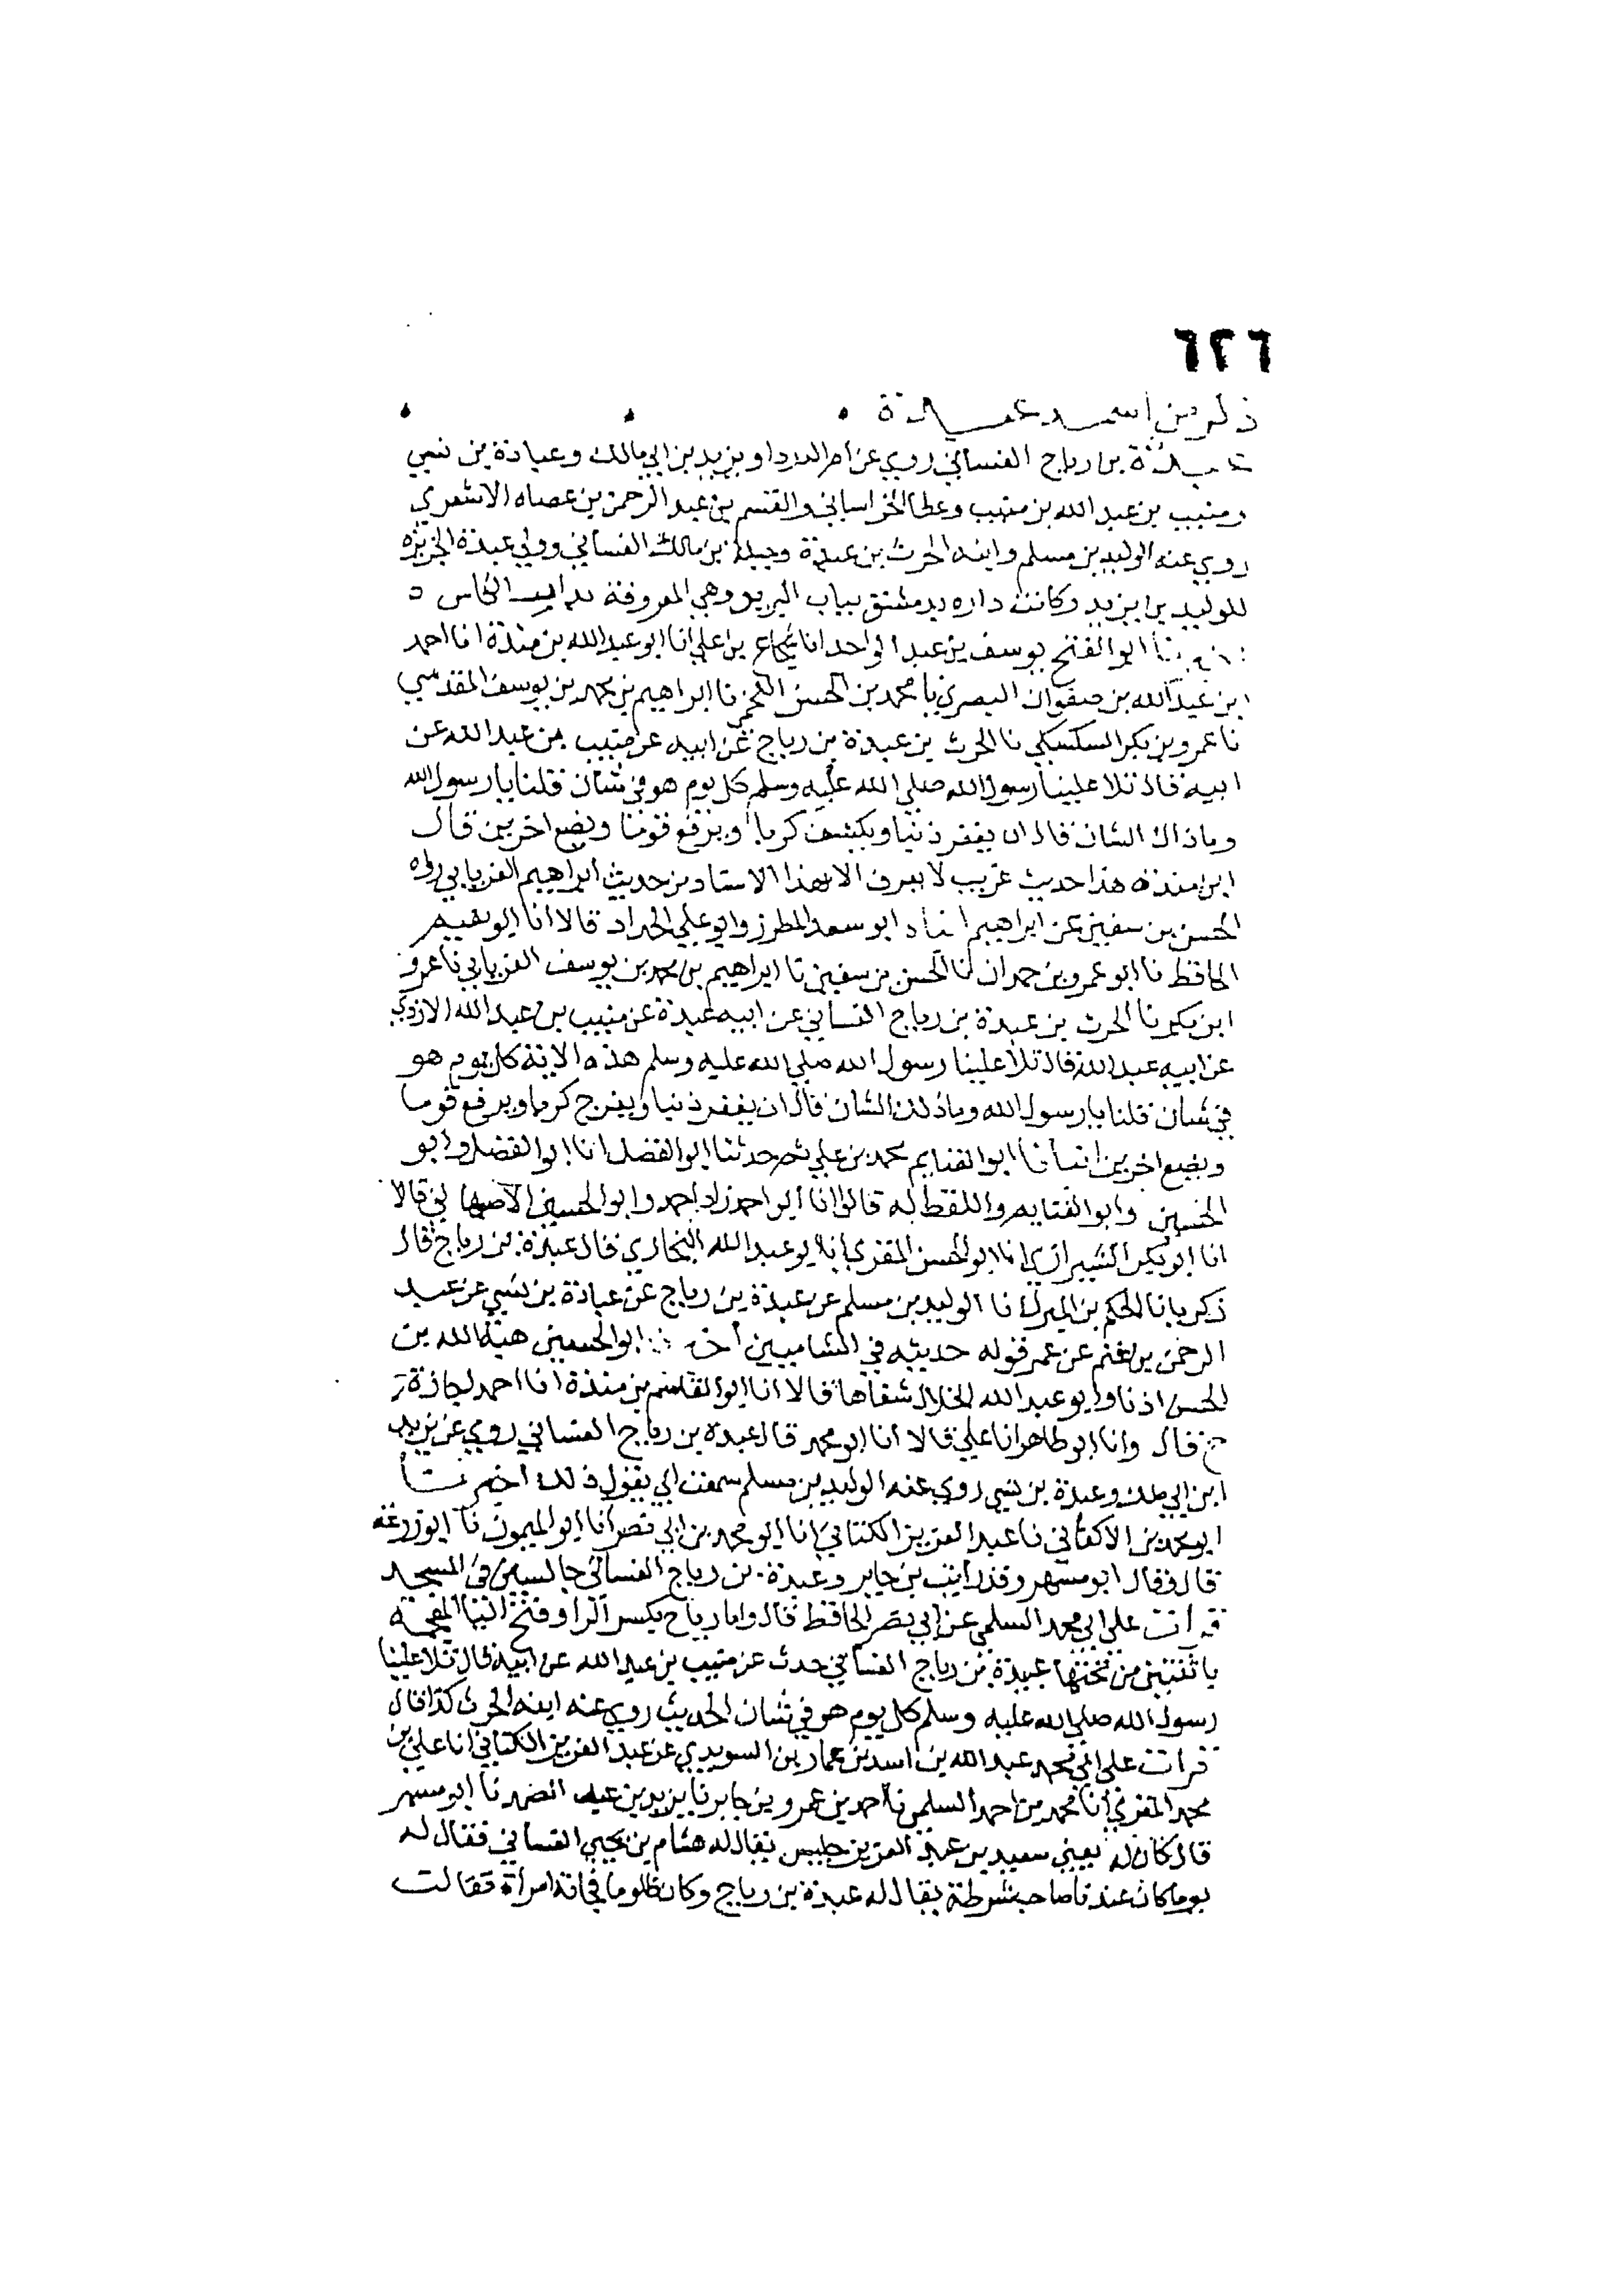 ٦٢٦
ذكر من اسمه عبدة
عبدة بن رياح الغساني روي عن ام الدرداو يزيد بن ابي مالك وعبادة بن نسي
ومنيب بن عبد الله بن منيب وعطا الخراساني والقسم بن عبد الرحمن بن عضاه الاشعري
روي عنه الوليد بن مسلم وابنه الحرث بن عبدة وجبلة بن مالك الغساني وولي عبدة الجزيره
للوليد بن يزيد وكانت داره بدمشق بباب البريد وهي المعروفة بدار
ابو الفتح يوسف بن عبد الواحد انا شجاع بن علي انا ابو عبد الله بن مندة انا احمد
ابن عبد الله بن صفوان البصري نا محمد بن الحسن نا ابراهيم بن محمد بن يوسف المقدسي
نا عمرو بن بكر السكسكي نا الحرث بن عبدة بن رياح عن ابيه عن منيب بن عبد الله عن
ابيه قال تلا علينا رسول الله صلي الله عليه وسلم كل يوم هو في شان قلنا يا رسول الله
وما ذاك الشان قال ان يغفر ذنبا ويكشف كربا ويرفع قوما ويضع اخرين قال
ابن مندة هذا حديث غريب لا يعرف الا بهذا الاسناد من حديث ابراهيم الفريابي رواه
الحسن بن سفين عن ابراهيم ابو سعد المطرز وابو علي الحداد قالا انا ابو نعيم
الحافظ نا ابو عمرو بن حمدان نا الحسن بن سفين نا ابراهيم بن محمد بن يوسف الفريابي نا عمرو
ابن بكر نا الحرث بن عبدة بن رياح الغساني عن ابيه عبدة عن منيب بن عبد الله الازدي
عن ابيه عبد الله قال تلا علينا رسول الله صلي الله عليه وسلم هذه الاية كل يوم هو
في شان قلنا يا رسول الله وما ذلك الشان قال ان يغفر ذنبا ويفرج كربا ويرفع قوما
ويضع اخرين انبأنا ابو الغنايم محمد بن علي ثم حدثنا ابو الفضل انا ابو الفضل وابو
الحسين وابو الغنايم واللفظ له قالوا انا ابو احمد زاد احمد وابو الحسين الاصبهاني قالا
انا ابو بكر الشيرازي انا ابو الحسن المقري انا ابو عبد الله البخاري قال عبدة بن رياح قال
زكريا نا الحكم بن المبرك نا الوليد بن مسلم عن عبدة بن رياح عن عبادة بن نسي عن عبد
الرحمن بن غنم عن عمر قوله حديثه في الشاميين ابو الحسين هبة الله بن
الحسن اذنا وابو عبد الله الخلال شفاها قالا انا ابو القاسم بن مندة انا احمد اجازة
ح قال وانا ابو طاهر انا علي قالا انا ابو محمد قال عبدة بن رياح الغساني روي عن يزيد
ابن ابي ملك وعبدة بن نسي روي عنه الوليد بن مسلم سمعت ابي يقول ذلك اخبرنا
ابو محمد بن الاكفاني نا عبد العزيز الكتاني انا ابو محمد بن ابي نصر انا ابو الميمون نا ابو زرعة
قال وقال ابو مسهر وقد رايت بن جابر وعبدة بن رياح الغساني جالسين في المسجد
قرات علي ابي محمد السلمي عن ابي نصر الحافظ قال واما رياح بكسر الرا وفتح اليا المعجمة
باثنتين من تحتها عبدة بن رياح الغساني حدث عن منيب بن عبد الله عن ابيه قال تلا علينا
رسول الله صلي الله عليه وسلم كل يوم هو في شان الحديث روي عنه ابنه الحرث كذا قال
قرات علي ابي محمد عبد الله بن اسد بن عمار بن السويدي عن عبد العزيز الكتاني انا علي بن
محمد المقري انا محمد بن احمد السلمي نا احمد بن عمرو بن جابر نا يزيد بن عبد الصمد نا ابو مسهر
قال كان له يعني سعيد بن عبد العزيز جليس يقال له هشام بن يحيي الغساني فقال له
يوما كان عندنا صاحب شرطة يقال له عبدة بن رياح وكان ظلوما فاتته امراة فقالت